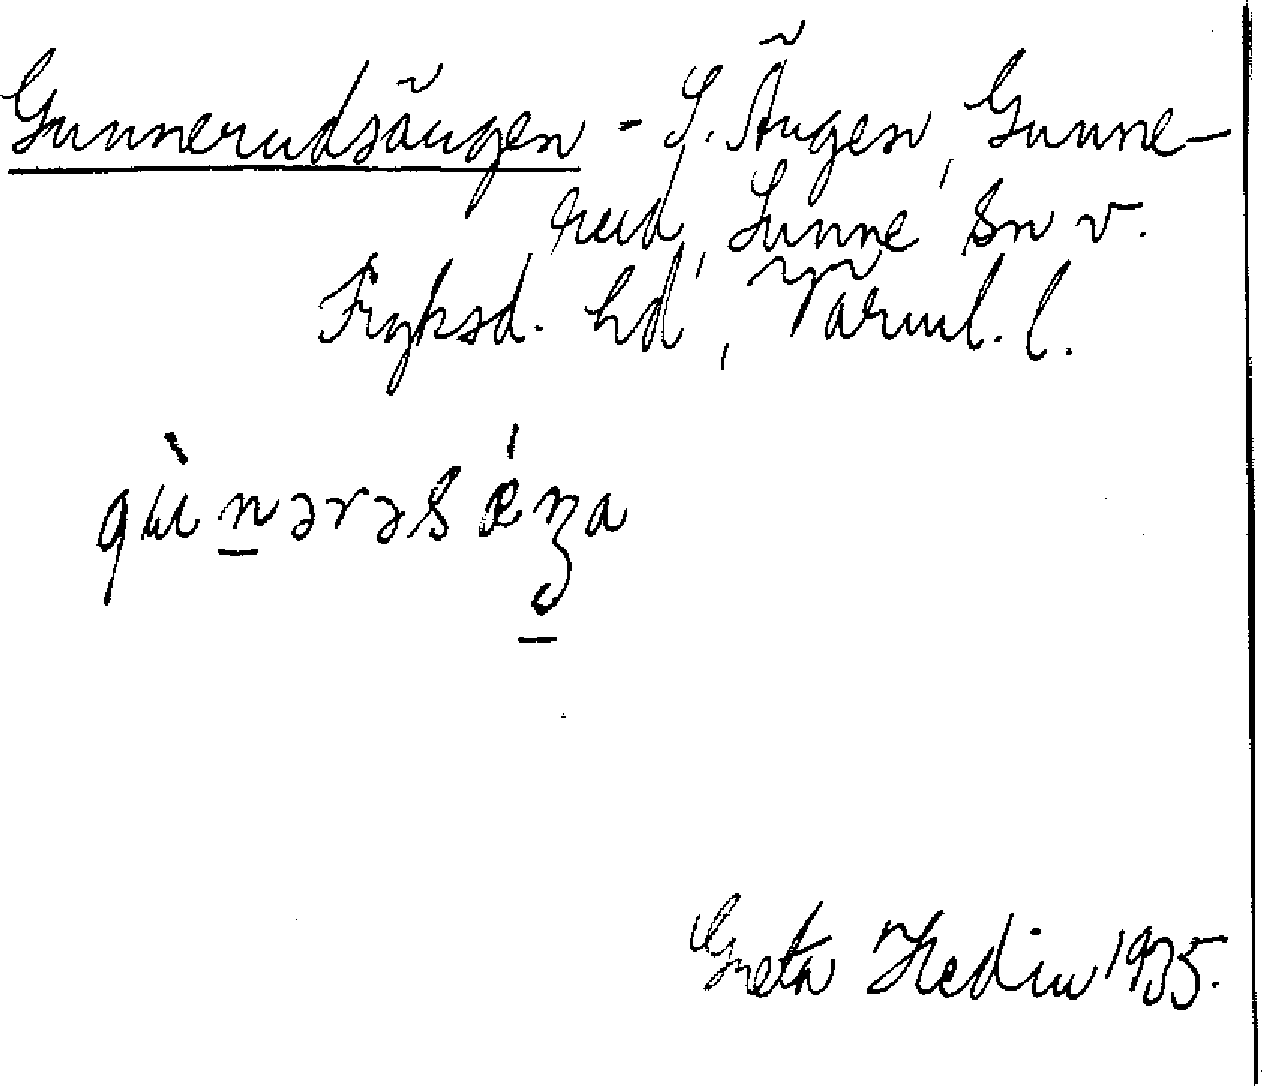 Gunnerudsängen - S. Ängen, Gunne-
rud, Sunne sn v.
Fryksd. hd, Värml. l.
Greta Hedin 1935.